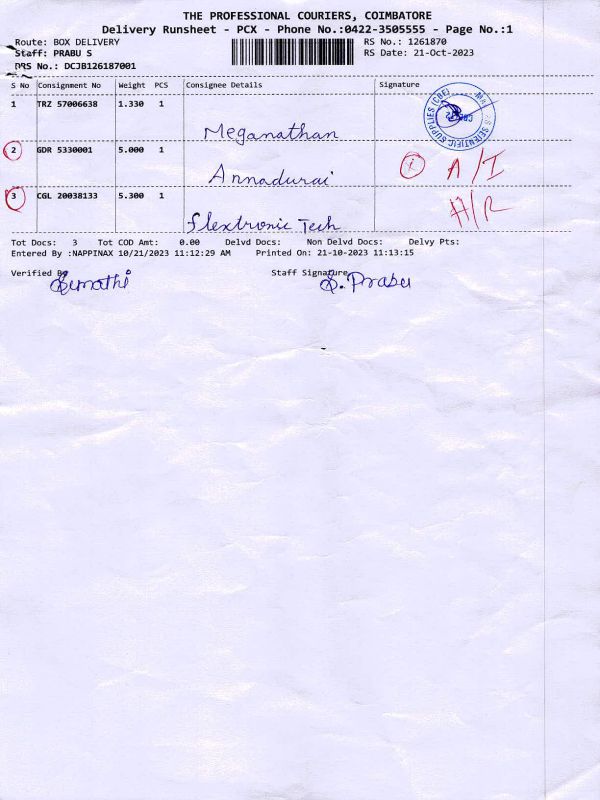 THE PROFESSIONAL COURIERS, COIMBATORE
Delivery Runsheet - PCX - Phone No.:0422-3505555 - Page No.:1
Route: BOX DELIVERY RS No.: 1261870
Staff: PRABU S RS Date: 21-Oct-2023
DRS No.: DCJB126187001
S No Consignment No Weight PCS Consignee Details Signature
1 TRZ 57006638 1.330 1 Meganathan
SCIENTIFIC SUPPLIES (CBE)
2 GDR 5330001 5.000 1 Annadurai A/I
3 CGL 20038133 5.300 1 Flextronic Tech H/R
Tot Docs: 3 Tot COD Amt: 0.00 Delvd Docs: Non Delvd Docs: Delvy Pts:
Entered By :NAPPINAX 10/21/2023 11:12:29 AM Printed On: 21-10-2023 11:13:15
Verified Staff Signature
S. Prabu